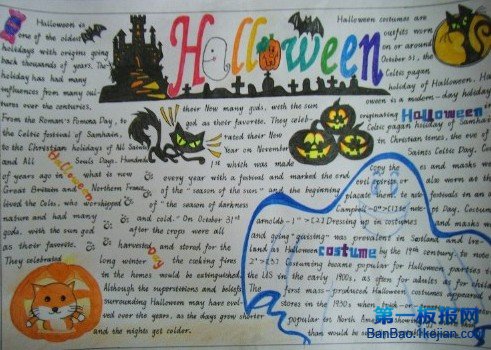 Halloween
Halloween is
one of the oldest
holidays with origins going
back thousands of years. The
holiday has had many
influences from many cul-
tures over the centuries.
From the Roman's Pomona Day, to
the Celtic festival of Samhain,
to the Christian holidays of All Saints
and All Souls Days. Hundreds
of years ago in what is now
Great Britain and Northern France,
lived the Celts, who worshipped
nature and had many
gods, with the sun god
as their favorite.
They celebrated
their New many gods, with the sun
god as their favorite. They celeb
rated their New
Year on November
1st which was made
every year with a festival and marked the end
of the "season of the sun" and the beginning
of "the season of darkness
and cold." On October 31st
after the crops were all
harvested and stored for the
long winter the cooking fires
in the homes would be extinguished.
Although the superstitions and beliefs
surrounding Halloween may have evol-
ved over the years, as the days grow shorter
and the nights get colder.
Halloween costumes are
outfits worn
on or around
October 31, the
Celtic pagan
holiday of Halloween. Hall
oween is a modern-day holiday
originating
Celtic pagan holiday of Samhain
in Christian times, the eve of
Saints Celts Day. Co
Copy the
and masks
evil espirits or also worn in
place them at festivals in
Campbell
Day. Costum
arnolds-1">[2] Dressing up in costumes and masks
and going "guising" was prevalent in Scotland and Ire-
land as Halloween by the 19th century to note
2">[3] Costuming became popular for Halloween parties
the US in the early 1900s, as often for adults as for children
The first mass-produced Halloween costumes appeared
stores in the 1930s when
popular in North America
than would be
Halloween
Halloween
costume
Day
第一板报网
BanBao.fkejian.com